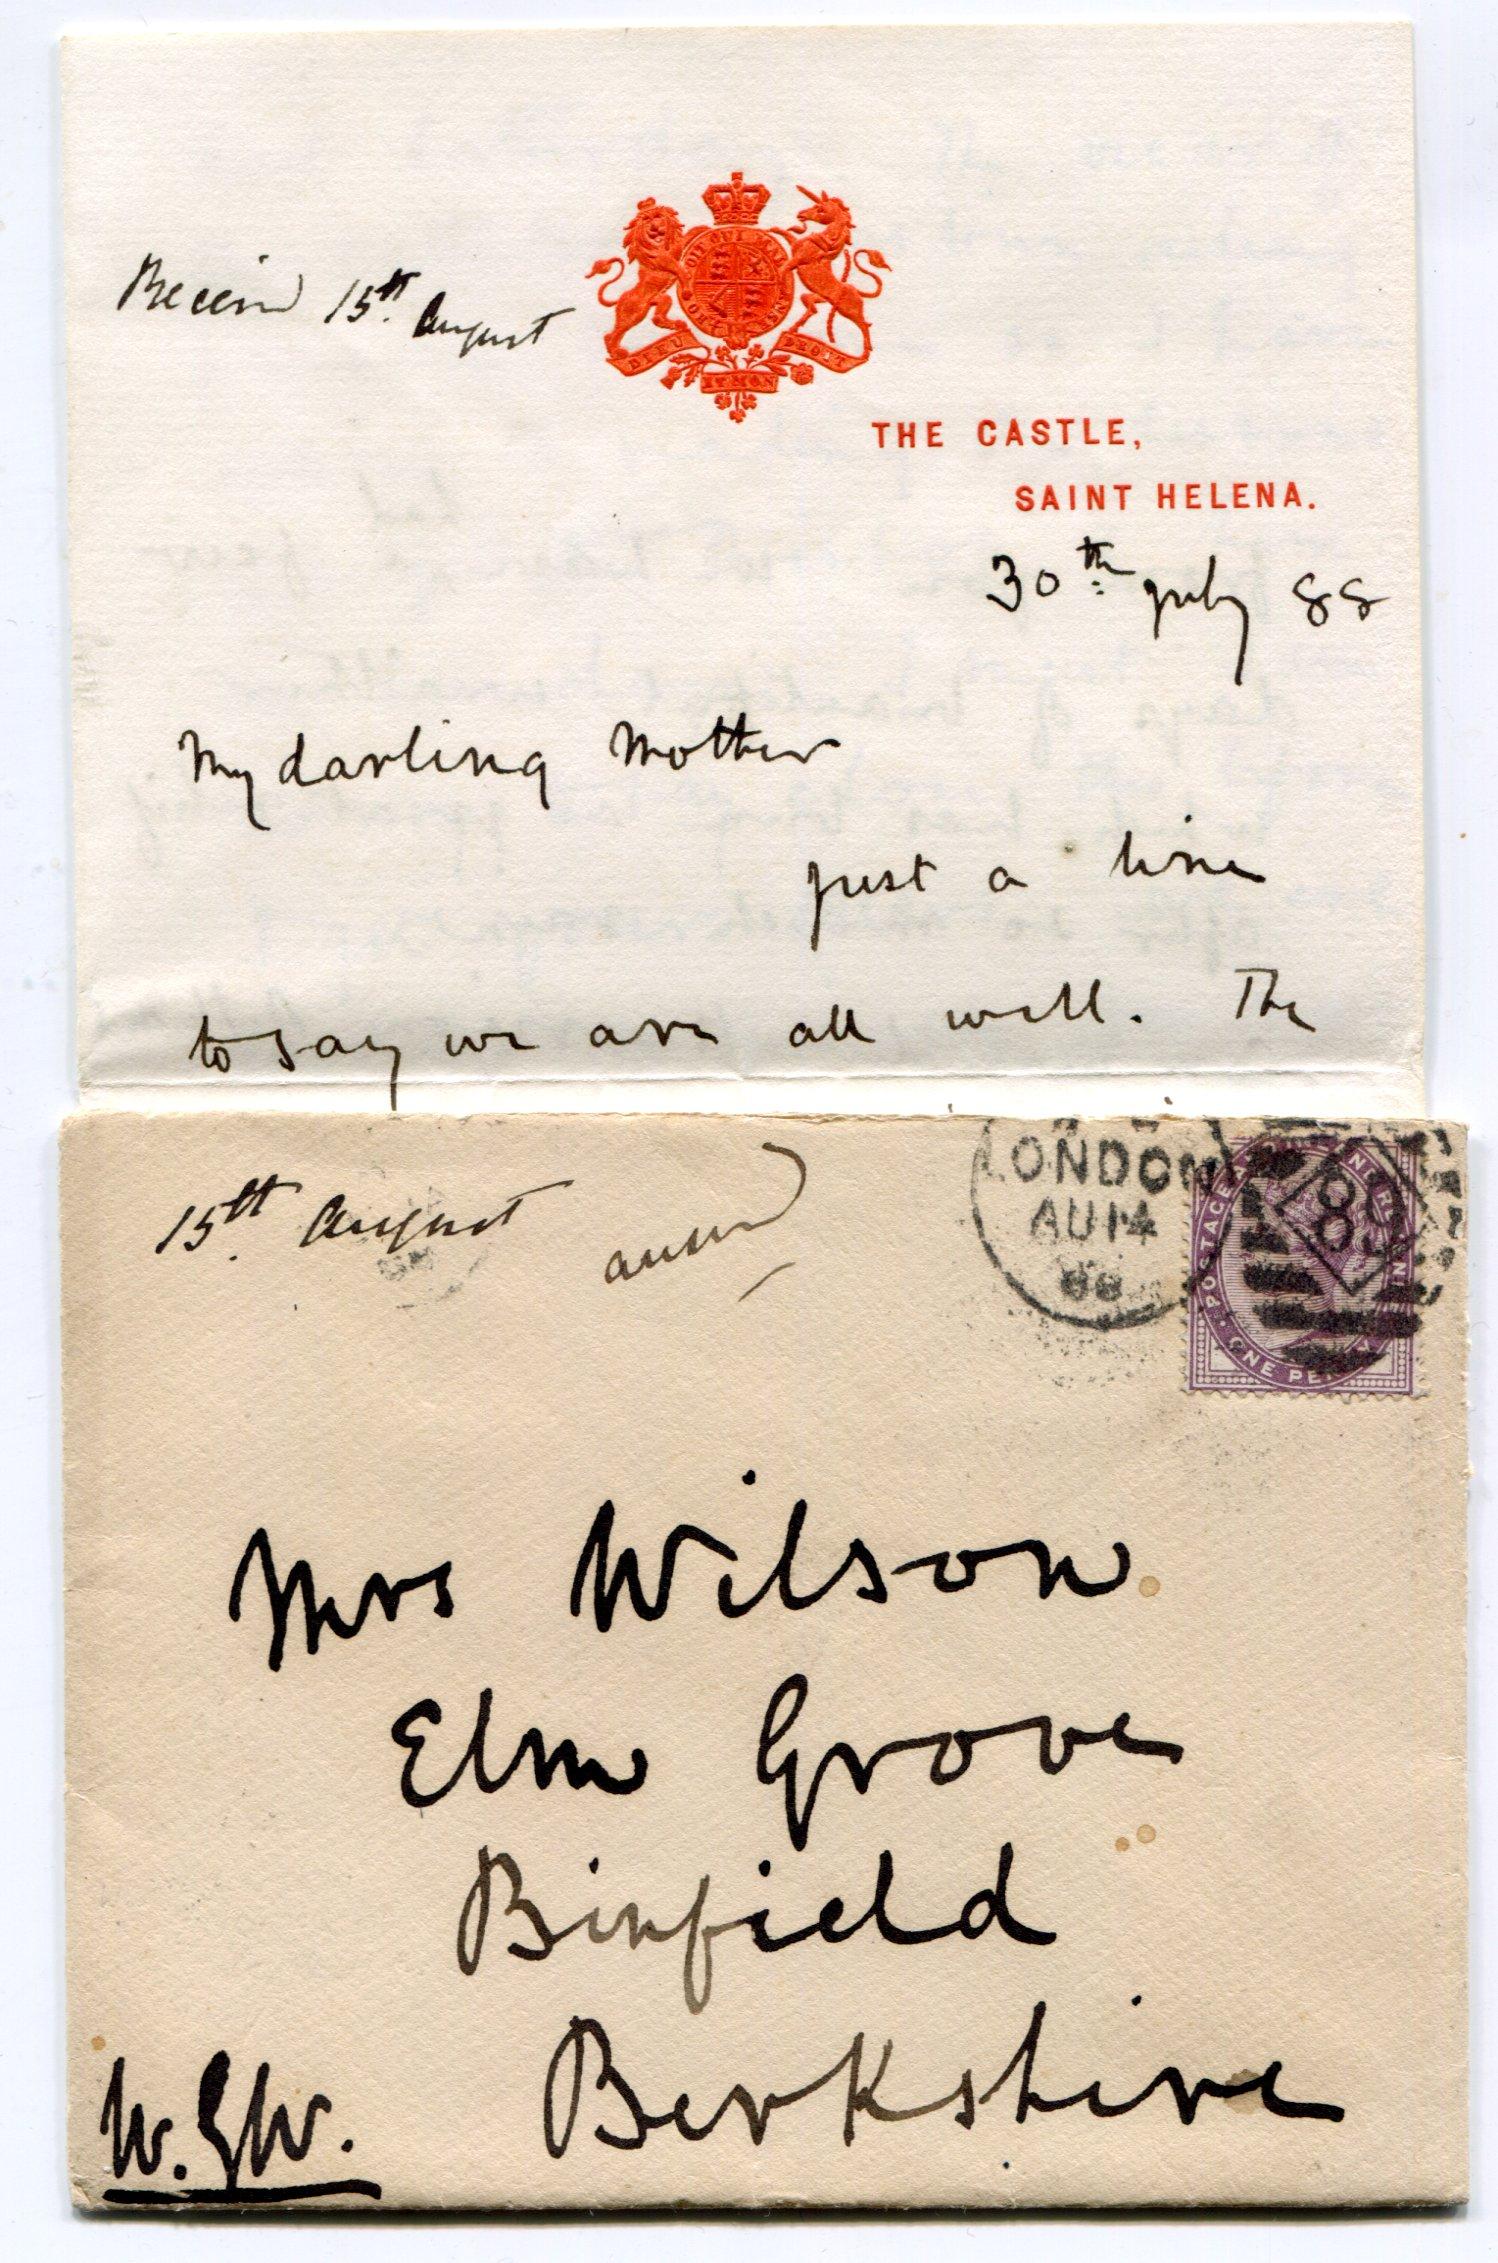 Received 15th August
HONI SOIT QUI MAL
DIEU ET MON DROIT
THE CASTLE,
SAINT HELENA.
30th July 88
My darling Mother
just a line
to say we are all well. The
15th August
LONDON
AU 14
88
89
POSTAGE AND INLAND REVENUE
ONE PENNY
Mrs Wilson
Elm Grove
Binfield
Berkshire
W.G.W.